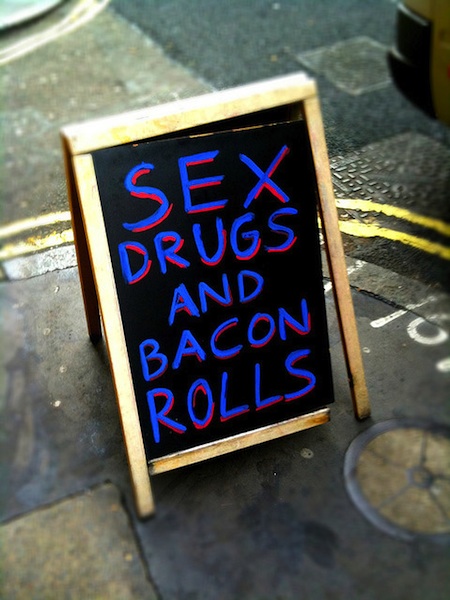 SEX
DRUGS
AND
BACON
ROLLS